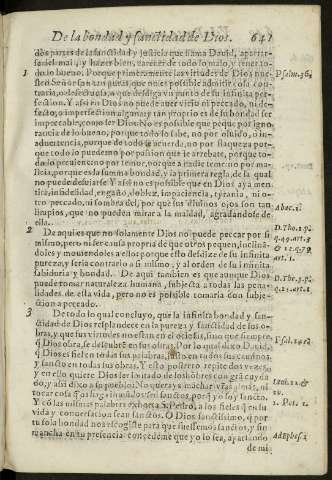 De la bondad y sanctidad de Dios. 641
dos partes de la sanctidad y justicia que llama David, apartar-
se del mal, y hazer bien, carecer de todo lo malo, y tener to-
1 do lo bueno. Porque primeramente las virtudes de Dios nue- Psalm. 36.
stro Señor son tan puras, que no es possible admitir cosa con-
traria, o defectuosa, o que desdiga vn punto de su infinita per-
fection. Y assi en Dios no puede aver vicio, ni pecado, ni de-
fecto, o imperfection alguna; tan proprio es de su bondad ser
impecable, como ser Dios. No es possible que peque por igno-
rancia de lo bueno, porque todo lo sabe, no por olvido, o in-
advertencia, porque de todo se acuerda, no por flaqueza por-
que todo lo puede, no por passion que le arrebate, porque to-
do lo previene, no por temor, porque a nadie teme: no por ma-
licia, porque es la summa bondad, y la primera regla, de la qual
no puede desviarse. Y assi no es possible que en Dios aya men-
tira, infidelidad, engaño, doblez, impaciencia, tyrania, ni o-
tro pecado, ni sombra del, por que sus divinos ojos son tan Abac. 1.
limpios, que no pueden mirar a la maldad, agradandose de
ella.
2 De aqui es que no solamente Dios no puede peccar por si D. Tho. 1. p.
mismo, pero ni ser causa propria de que otros pequen, inclinan- q. 49. art. 2
doles y moviendoles a ello: porque esso desdize de su infinita & 1. 2. q. 79.
pureza, y seria contrario a si mismo, y al orden de su infinita art. 1.
sabiduria y bondad. De aqui tambien es que aunque Dios D. Tho. 3. p.
puede tomar naturaleza humana, subjecta a todas las pena- q. 15. art. 1.
lidades de esta vida, pero no es possible tomarla con subje-
ction a peccado.
3 De todo lo qual concluyo, que la infinita bondad y san-
ctidad de Dios resplandece en la pureza y sanctidad de sus o-
bras, y que sus virtudes no estan en el ociosas, sino que siempre
q̃ Dios obra, se descubrẽ en sus obras. Por lo qual dixo David, Psal. 144.
q̃ Dios es fiel en todas sus palabras, justo en todos sus caminos,
y sancto en todas sus obras. Y esto postrero repite dos vezes,
y en ello quiere Dios ser imitado de los hombres con grã cuyda
do, y assi dixo a su pueblo: No querays manchar vr̃as almas, ni Levi. 11. &
tocar cosa q̃ os haga inmundos: sed sanctos, porq̃ yo soy sancto. 20.
Y cõ las mismas palabras exhorta S. Pedro, a los fieles q̃ en su 1. Pet. 1.
vida y conversacion sean sanctos. O Dios sanctissimo, q̃ por
tu sola bondad nos escogiste para que fuessemos sanctos, y sin Ad Ephes. 1
mancha en tu presencia concedeme que yo lo sea, apartando
de mi